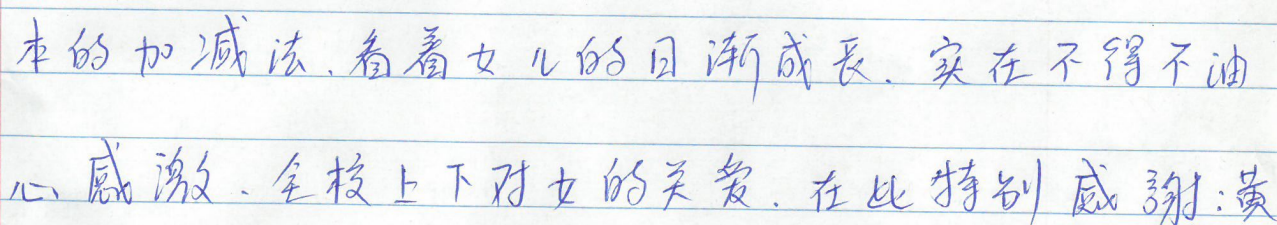 本的加减法.看着女儿的日渐成長.实在不得不油
心感激.全校上下对女的关爱.在此特别感謝:黄